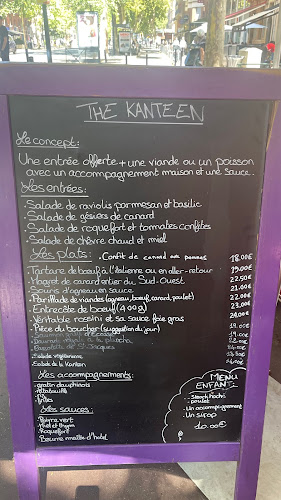 THE KANTEEN
Le concept:
Une entrée offerte + une viande ou un poisson
avec un accompagnement maison et une sauce.
Les entrées:
. Salade de raviolis parmesan et basilic
. Salade de gésiers de canard
. Salade de roquefort et tomates confites
. Salade de chèvre chaud et miel
Les plats: . Confit de canard aux pommes 18.00€
. Tartare de bœuf à l'italienne ou en aller-retour 19.00€
. Magret de canard entier du Sud-Ouest 22.50€
. Souris d'agneau en sauce 21.00€
. Parillade de viandes (agneau, bœuf, canard, poulet) 22.00€
. Entrecôte de bœuf (400g) 23.00€
. Véritable rossini et sa sauce foie gras 24.00€
. Pièce du boucher (suggestion du jour)
à la plancha
St Jacques
. Salade végétarienne
. Salade de la Kanteen
Les accompagnements:
. gratin dauphinois
. Ratatouille
. Riz
. Frites
Les sauces:
. Poivre vert
. Miel et thym
. Roquefort
. Beurre maître d'hôtel
MENU
ENFANT:
. Steack haché
. poulet
. Un accompagnement
. Un sirop
10.00€